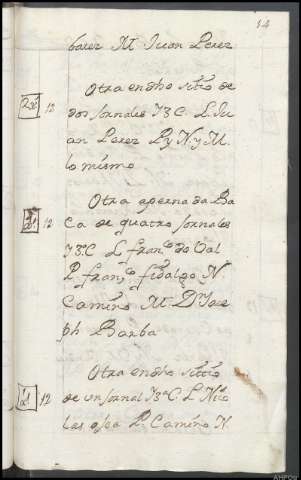 14
barez M Juan Perez
Otra en dho sitio de
12 dos Jornales J3ª C. L Ju
an Perez P y N. y M.
lo mismo
Otra a perna da Ba
12 ca de quatro Jornales
J3ª C L franco do Val
P. franco fidalgo N
Camino M Dn Jose
ph Barba
Otra en dho sitio
12 de un Jornal J3ª C. L Nico
las P. Camino N.
AHPOu